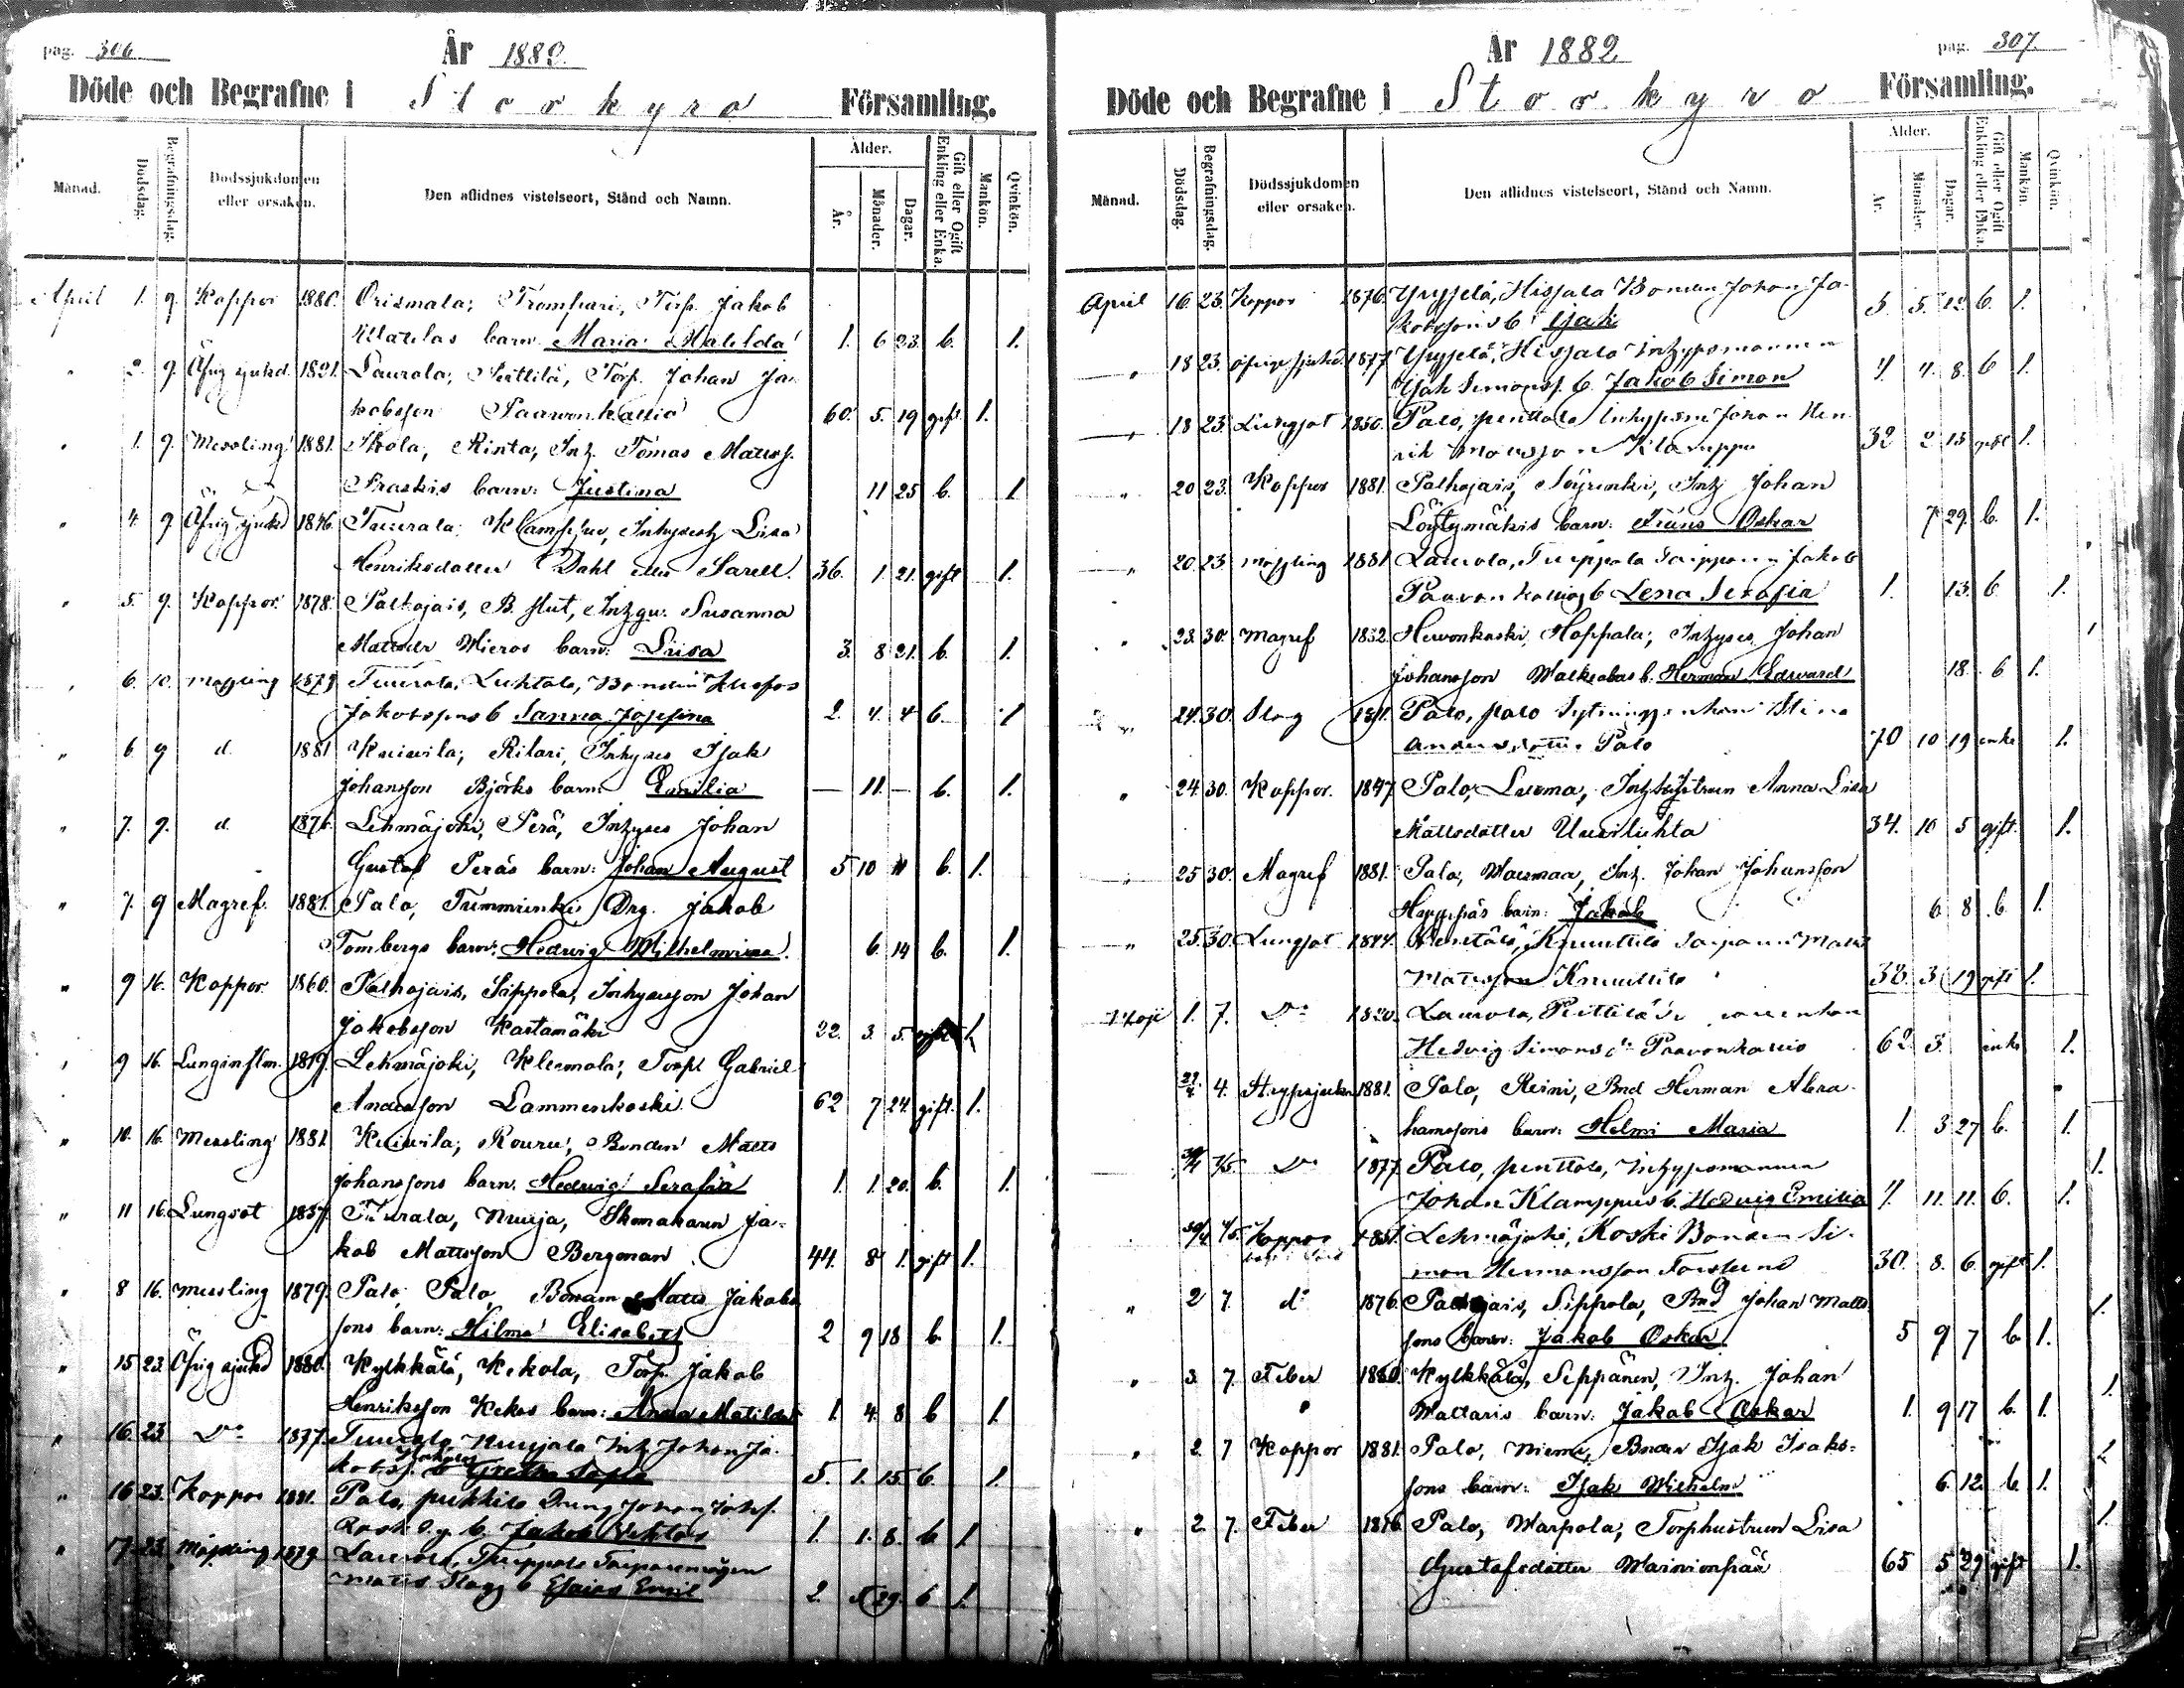 pag. 306
År 1882.
Döde och Begrafne i Storkyro Församling.
Månad.
Dödsdag.
Begrafningsdag.
Dödssjukdomen eller orsaken.
Den aflidnes vistelseort, Stånd och Namn.
Ålder.
År.
Månader.
Dagar.
Gift eller Ogift Enkling eller Enka.
Mankön.
Qvinkön.
April 1. 9. Koppor 1880. Orismala, Trompari, Torp. Jakob
barn Maria Matilda 1. 6 23. b. 1.
" 2. 9. Öfrig sjukd. 1821. Laurola, Perttilä, Torp. Johan Ja-
kobsson Paavonkallio 60. 5. 19 gift 1.
" 1. 9. Messling 1881. Ikola, Rinta, Inh. Tomas Matts.
barn: Justina 11 25 b. 1
" 4. 9 Öfrig sjukd 1846. Tuurala, Klamppu, Lisa
Henriksdotter Dahl eller Sarell. 36. 1. 21. gift 1.
" 5. 9. Koppor. 1878. Palhojais, Susanna
Mattsdr barn: Lisa 3. 8 21. b. 1.
" 6. 10. messling 1879 Tuurala, Luhtala, Bonden
Jakobssons b Sanna Josefina 2. 4. 4 b. 1
" 6. 9 d. 1881 Kuivila, Rilari, Inhyses Isak
Johansson Björks barn Emilia — 11. — b. 1.
" 7. 9. d. 1876. Lehmäjoki, Perä, Inhyses Johan
Gustaf Peräs barn: Johan August 5 10 11 b. 1.
" 7. 9 Magref. 1881. Palo, Drg. Jakob
Tombergs barn: Hedvig Wilhelmina. 6. 14 b. 1.
" 9 16. Koppor. 1860. Palhojais, Sippola, Inhysesson Johan
Jakobsson Kastamäki 22. 3. 5. gift 1.
" 9 16. Lunginflm. 1819. Lehmäjoki, Kleemola, Torp. Gabriel
Andersson Lammenkoski 62 7 24. gift. 1.
" 10. 16. Messling 1881. Kuivila, Rouru, Bonden Matts
Johanssons barn. Hedvig Serafia 1. 1. 20. b. 1.
" 11 16. Lungsot 1837. Tuurala, Nuuja, Skomakaren Ja-
kob Mattsson Bergman 44. 8 1. gift 1.
" 8 16. messling 1879. Palo, Palo, Bonden Matts Jakobs
sons barn: Hilma Elisabeth 2 9 18 b. 1.
" 15 23. Öfrig sjukd 1880. Kylkkälä, Kekola, Torp. Jakob
Henriksson Kekos barn: Anna Matilda 1. 4. 8 b 1.
" 16. 23. Do 1877. Tuurala, Nuujala Inh Johan Ja-
kobss. b Gretha Sofia 5. 1. 15. b. 1.
" 16 23. Koppor 1881. Palo, Johan
b. Jakob Viktor 1. 1. 8. b 1.
" 17. 23. Mässling 1879. Laurola, Tuippola
Matts b Esaias Emil 2. 29. b 1.
pag. 307.
År 1882
Döde och Begrafne i Storkyro Församling.
Månad.
Dödsdag.
Begrafningsdag.
Dödssjukdomen eller orsaken.
Den aflidnes vistelseort, Stånd och Namn.
Ålder.
År.
Månader.
Dagar.
Gift eller Ogift Enkling eller Enka.
Mankön.
Qvinkön.
April 16 23. Koppor 1876. Yryselä, Hissala Bonden Johan Ja-
kobssons b Isak 5 5. 12. b. 1.
" 18 23. öfrig sjukd. 1877 Yryselä, Hissala Inhysesmannen
Isak Simonss. b. Jakob Simon 4. 4. 8. b 1.
" 18 23. Lungsot 1850. Palo, penttala Johan Hen-
rik Mattsson Klamppu 32 2 13 gift 1.
" 20 23. Koppor 1881. Palhojais, Inh Johan
Löytymäkis barn: Frans Oskar 7 29. b. 1.
" 20. 23 mässling 1881 Laurola, Jakob
b Lena Serafia 1. 13. b. 1.
" 23. 30. Magref 1882. Hevonkoski, Hoppala, Inhyses Johan
Johansson b. Herman Edward 18. b 1.
" 24. 30. Slag 1811. Palo, palo Stina
Andersdotter Palo 70 10 19 enka 1.
" 24. 30. Koppor. 1847 Palo, Luoma, Anna Lisa
Mattsdotter Uusiluhta 34. 10 5 gift. 1.
" 25 30. Magref 1881. Palo, Inh. Johan Johansson
barn: Jakob 6. 8 b. 1.
" 25. 30. Lungsot 1844. Knuuttila Matts
Mattsson Knuuttila 38. 3 19 gift 1.
Maji 1. 7. Do 1820. Laurola, Perttilä
Hedvig Simonsdr Paavonkallio 62 3. enka 1.
29/4 4. Strypsjukan 1881. Palo, Reini, Bnd Herman Abra-
hamssons barn: Helmi Maria 1. 3 27 b. 1.
30/4 7/5. Do 1877 Palo, penttala, Inhysesmannen
Johan Klamppus b. Hedvig Emilia 4. 11. 11. b. 1.
30/4 7/5. Koppor 1851. Lehmäjoki, Koski Bonden Si-
mon Hermansson 30. 8. 6. gift 1.
" 2 7. do 1876. Palhojais, Sippola, Bnd Johan Matts
sons barn: Jakob Oskar 5 9 7 b. 1.
" 3. 7. Feber 1880. Kylkkälä, Seppänen, Inh. Johan
Waltaris barn: Jakob Oskar 1. 9 17 b. 1.
" 2. 7 Koppor 1881. Palo, Niemi, Bonden Isak Isaks-
sons barn: Isak Wilhelm 6. 12. b. 1.
" 2 7. Feber 1816 Palo, Warpola, Torphustrun Lisa
Gustafsdotter Wainionpää 65 5 29 gift 1.